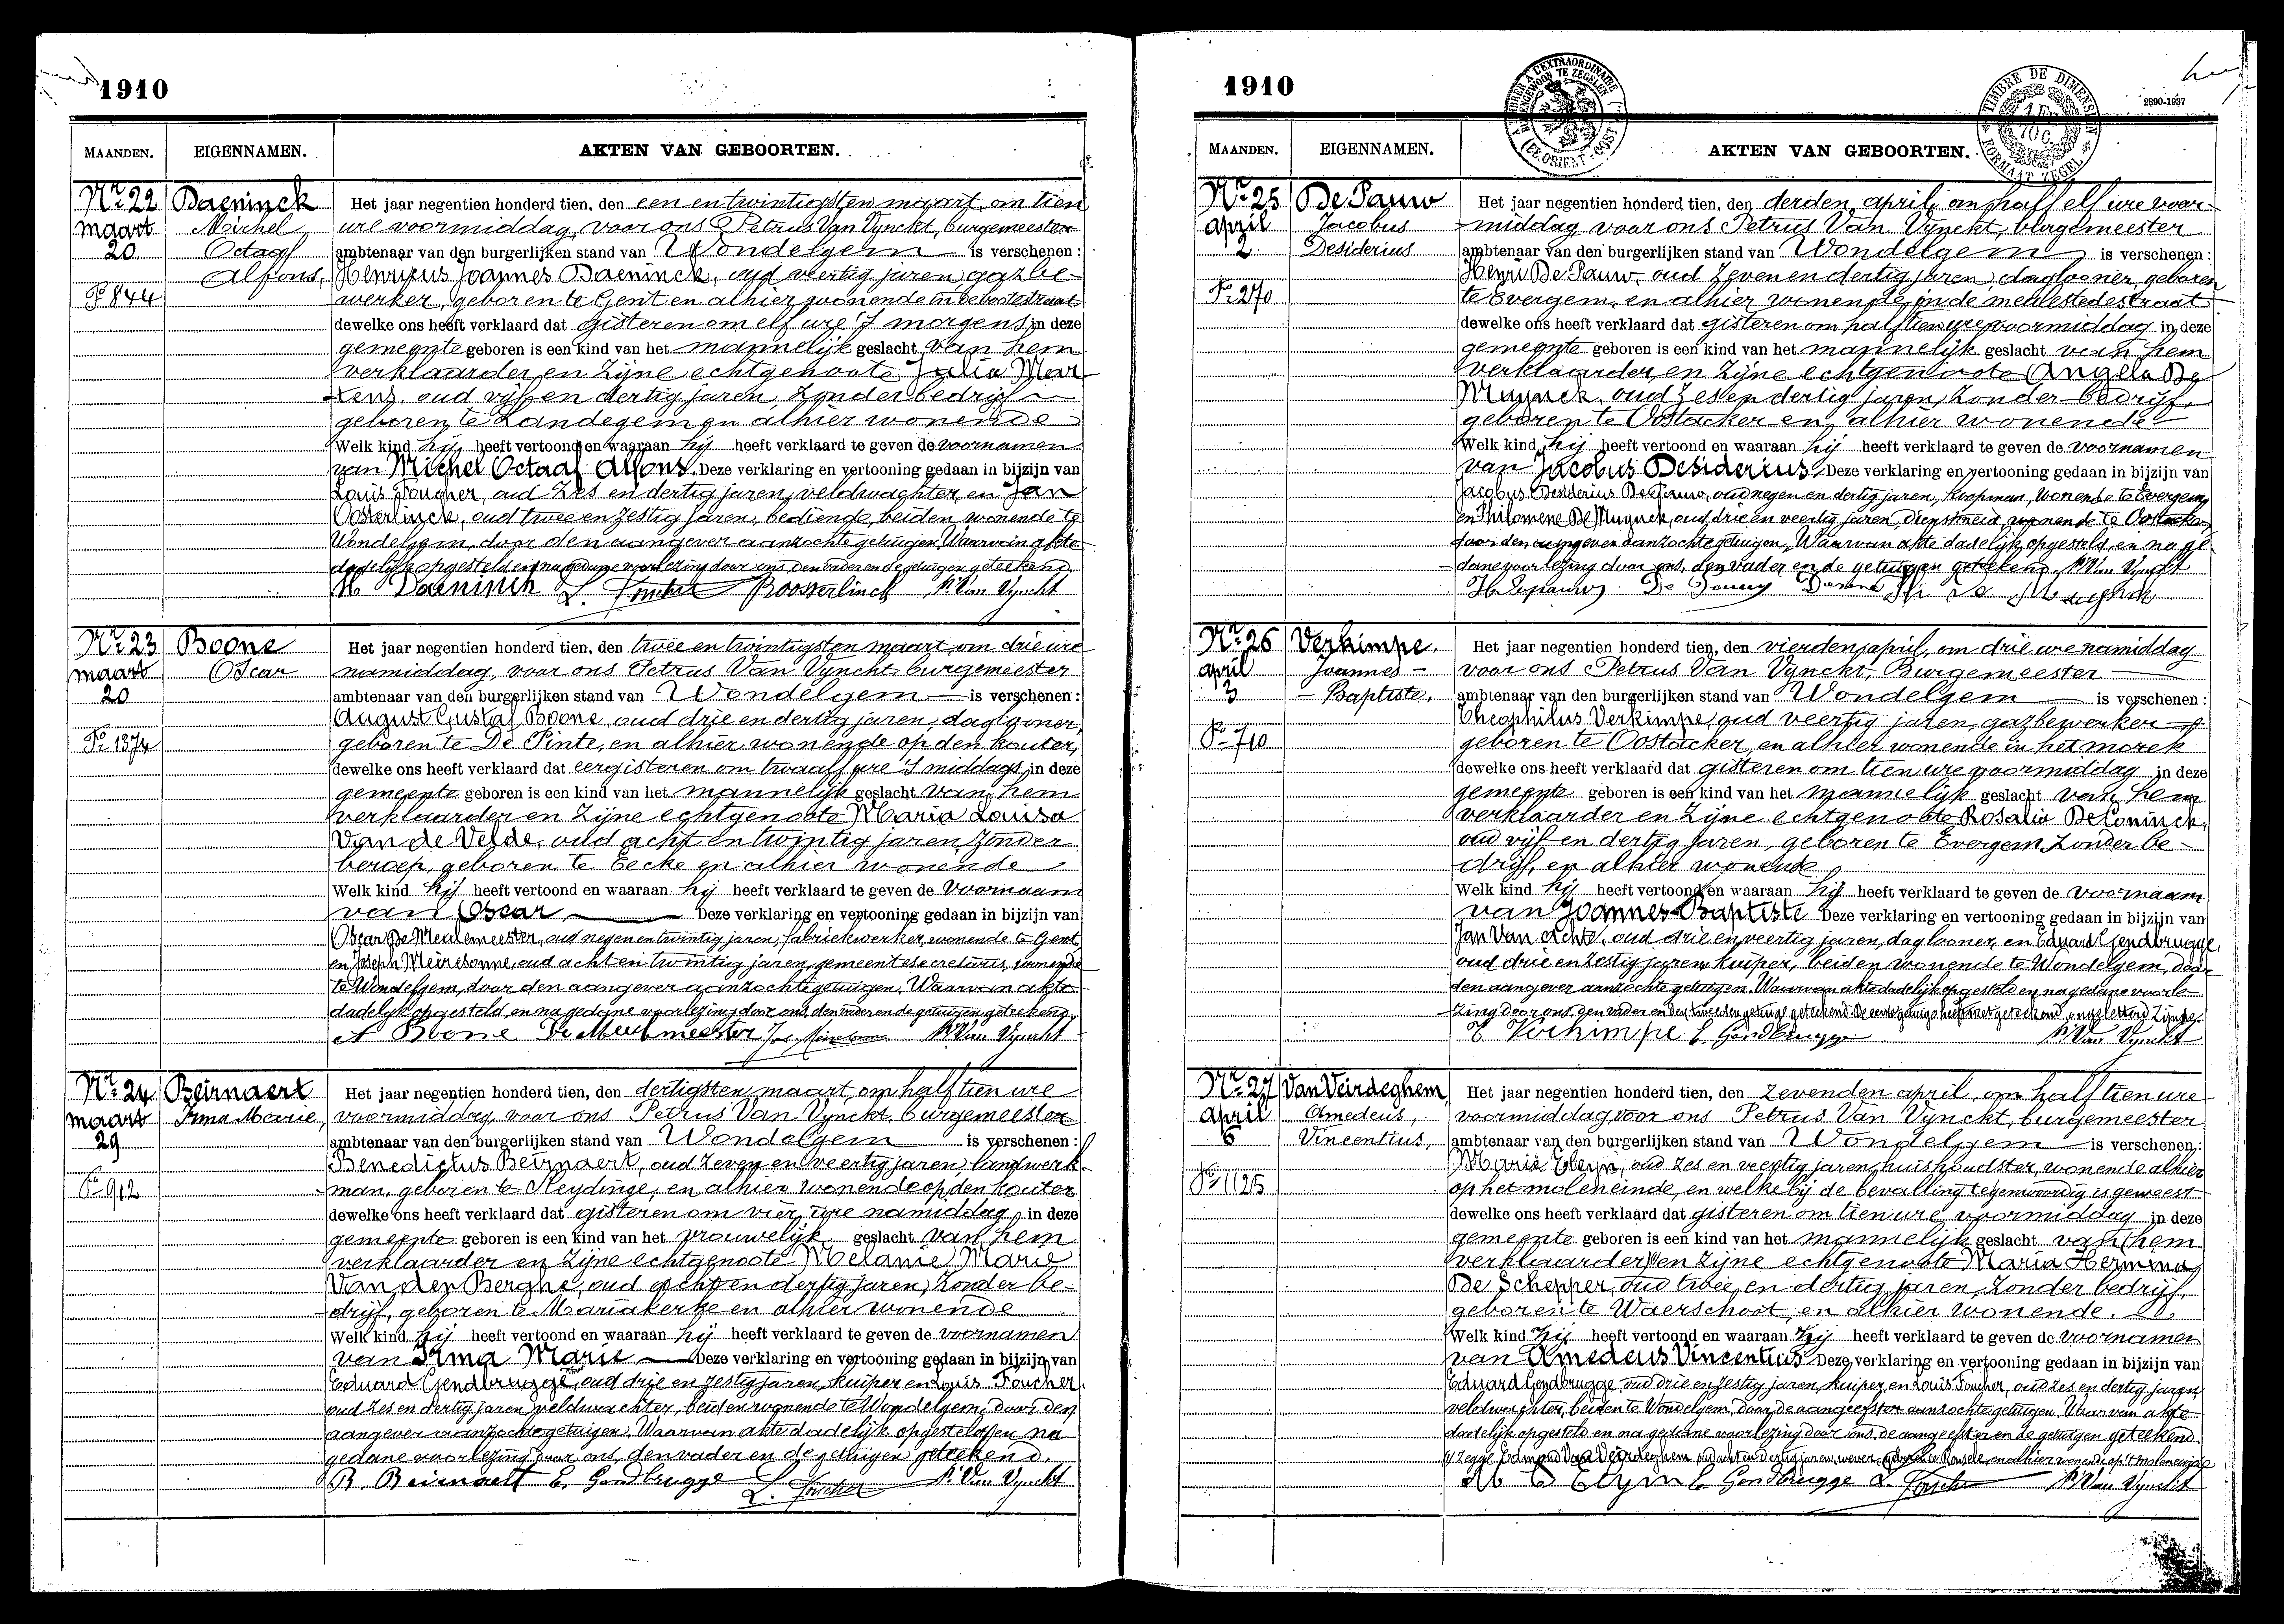 1910
MAANDEN. EIGENNAMEN. AKTEN VAN GEBOORTEN.
Nr 22
maart
20
Fo 844
Daeninck
Michel
Octaaf
Alfons,
Het jaar negentien honderd tien, den een en twintigsten maart, om tien
ure voormiddag, voor ons Petrus Van Vynckt, burgemeester
ambtenaar van den burgerlijken stand van Wondelgem is verschenen:
Henricus Joannes Daeninck, oud veertig jaren, gazbe-
werker, geboren te Gent en alhier wonende in
dewelke ons heeft verklaard dat gisteren om elf ure 's morgens in deze
gemeente geboren is een kind van het mannelijk geslacht van hem
verklaarder en zijne echtgenoote Julia Mar-
tens, oud vijf en dertig jaren, zonder bedrijf
geboren te Landegem en alhier wonende
Welk kind hij heeft vertoond en waaraan hij heeft verklaard te geven de voornamen
van Michel Octaaf Alfons. Deze verklaring en vertooning gedaan in bijzijn van
Louis Foucher, oud zes en dertig jaren, veldwachter, en Jan
Oosterlinck, oud twee en zestig jaren, bediende, beiden wonende te
Wondelgem, door den aangever aanzochte getuigen. Waarvan akte
dadelijk opgesteld en na gedane voorlezing door ons, den vader en de getuigen geteekend.
H Daeninck L. Foucher Poosterlinck P. Van Vynckt
Nr 23
maart
20
Fo 1374
Boone
Oscar
Het jaar negentien honderd tien, den twee en twintigsten maart om drie ure
namiddag, voor ons Petrus Van Vynckt, burgemeester
ambtenaar van den burgerlijken stand van Wondelgem is verschenen:
August Gustaf Boone, oud drie en dertig jaren, daglooner,
geboren te De Pinte, en alhier wonende op den kouter,
dewelke ons heeft verklaard dat eergisteren om twaalf ure 's middags in deze
gemeente geboren is een kind van het mannelijk geslacht van hem
verklaarder en zijne echtgenoote Maria Louisa
Van de Velde, oud acht en twintig jaren, zonder
beroep, geboren te Eecke en alhier wonende
Welk kind hij heeft vertoond en waaraan hij heeft verklaard te geven de voornaam
van Oscar Deze verklaring en vertooning gedaan in bijzijn van
Oscar De Meulemeester, oud negen en twintig jaren, fabriekwerker, wonende te Gent
en Joseph Meiresonne, oud acht en twintig jaren, gemeentesecretaris, wonende
te Wondelgem, door den aangever aanzochte getuigen. Waarvan akte
dadelijk opgesteld, en na gedane voorlezing door ons, den vader en de getuigen geteekend.
A Boone De Meulemeester Jos. Meiresonne P. Van Vynckt
Nr 24
maart
29
Fo 912
Beirnaert
Irma Marie,
Het jaar negentien honderd tien, den dertigsten maart, om half tien ure
voormiddag, voor ons Petrus Van Vynckt, burgemeester
ambtenaar van den burgerlijken stand van Wondelgem is verschenen:
Benedictus Beirnaert, oud zeven en veertig jaren, landwerk-
man, geboren te Sleydinge, en alhier wonende op den kouter
dewelke ons heeft verklaard dat gisteren om vier ure namiddag, in deze
gemeente geboren is een kind van het vrouwelijk geslacht van hem
verklaarder en zijne echtgenoote Melanie Marie
Van den Berghe, oud acht en dertig jaren, zonder be-
drijf, geboren te Mariakerke en alhier wonende
Welk kind hij heeft vertoond en waaraan hij heeft verklaard te geven de voornamen
van Irma Marie Deze verklaring en vertooning gedaan in bijzijn van
Eduard Gendbrugge, oud drie en zestig jaren, kuiper en Louis Foucher,
oud zes en dertig jaren, veldwachter, beiden wonende te Wondelgem, door den
aangever aanzochte getuigen. Waarvan akte dadelijk opgesteld en na
gedane voorlezing door ons, den vader en de getuigen geteekend.
B. Beirnaert E. Gendbrugge L. Foucher P. Van Vynckt
1910
2890-1937
TIMBRE DE DIMENSION
FORMAAT ZEGEL
MAANDEN. EIGENNAMEN. AKTEN VAN GEBOORTEN.
Nr 25
april
2
Fo 270
De Pauw
Jacobus
Desiderius
Het jaar negentien honderd tien, den derden april, om half elf ure voor-
middag, voor ons Petrus Van Vynckt, burgemeester
ambtenaar van den burgerlijken stand van Wondelgem is verschenen:
Henri De Pauw, oud zeven en dertig jaren, daglooner, geboren
te Evergem, en alhier wonende in de meulestedestraat
dewelke ons heeft verklaard dat gisteren om half tien ure voormiddag in deze
gemeente geboren is een kind van het mannelijk geslacht van hem
verklaarder, en zijne echtgenoote Angela De
Muynck, oud zes en dertig jaren, zonder bedrijf,
geboren te Oostacker en alhier wonende
Welk kind hij heeft vertoond en waaraan hij heeft verklaard te geven de voornamen
van Jacobus Desiderius. Deze verklaring en vertooning gedaan in bijzijn van
Jacobus Desiderius De Pauw, oud negen en dertig jaren, koopman, wonende te Evergem,
en Philomene De Muynck, oud drie en veertig jaren, dienstmeid, wonende te Oostacker
door den aangever aanzochte getuigen. Waarvan akte dadelijk opgesteld, en na ge-
dane voorlezing door ons, den vader en de getuigen geteekend. P. Van Vynckt
H. Depauw
Nr 26
april
3
Fo 710
Verkimpe.
Joannes-
-Baptiste,
Het jaar negentien honderd tien, den vierden april, om drie ure namiddag
voor ons Petrus Van Vynckt, Burgemeester
ambtenaar van den burgerlijken stand van Wondelgem is verschenen:
Theophilus Verkimpe, oud veertig jaren, gazbewerker
geboren te Oostacker, en alhier wonende in het morek
dewelke ons heeft verklaard dat gisteren om tien ure voormiddag in deze
gemeente geboren is een kind van het mannelijk geslacht van hem
verklaarder en zijne echtgenoote Rosalie De Coninck,
oud vijf en dertig jaren, geboren te Evergem, zonder be-
drijf, en alhier wonende
Welk kind hij heeft vertoond en waaraan hij heeft verklaard te geven de voornaam
van Joannes-Baptiste Deze verklaring en vertooning gedaan in bijzijn van
Jan Van Achte, oud drie en veertig jaren, daglooner, en Eduard Gendbrugge,
oud drie en zestig jaren, kuiper, beiden wonende te Wondelgem, door
den aangever aanzochte getuigen. Waarvan akte dadelijk opgesteld en na gedane voorle-
zing door ons, den vader en den tweeden getuige geteekend. De eerste getuige heeft niet geteekend, ongeletterd zijnde.
T Verkimpe E. Gendbrugge P. Van Vynckt
Nr 27
april
6
Fo 1125
Van Veirdeghem
Amedeus,
Vincentius,
Het jaar negentien honderd tien, den zevenden april, om half tien ure
voormiddag, voor ons Petrus Van Vynckt, burgemeester
ambtenaar van den burgerlijken stand van Wondelgem is verschenen:
Marie Eleyn, oud zes en veertig jaren, huishoudster, wonende alhier
op het moleneinde, en welke bij de bevalling tegenwoordig is geweest
dewelke ons heeft verklaard dat gisteren om tien ure voormiddag in deze
gemeente geboren is een kind van het mannelijk geslacht van (hem
verklaarder) en zijne echtgenoote Maria Hermina
De Schepper, oud twee en dertig jaren, zonder bedrijf,
geboren te Waerschoot, en alhier wonende.
Welk kind zij heeft vertoond en waaraan zij heeft verklaard te geven de voornamen
van Amedeus Vincentius Deze verklaring en vertooning gedaan in bijzijn van
Eduard Gendbrugge, oud drie en zestig jaren, kuiper, en Louis Foucher, oud zes en dertig jaren
veldwachter, beiden te Wondelgem, door de aangeefster aanzochte getuigen. Waarvan akte
dadelijk opgesteld en na gedane voorlezing door ons, de aangeefster en de getuigen geteekend.
zegge Edmond Van Veirdeghem, oud acht en dertig jaren, wever, geboren te en alhier wonende op 't moleneinde
E. Gendbrugge L. Foucher P. Van Vynckt